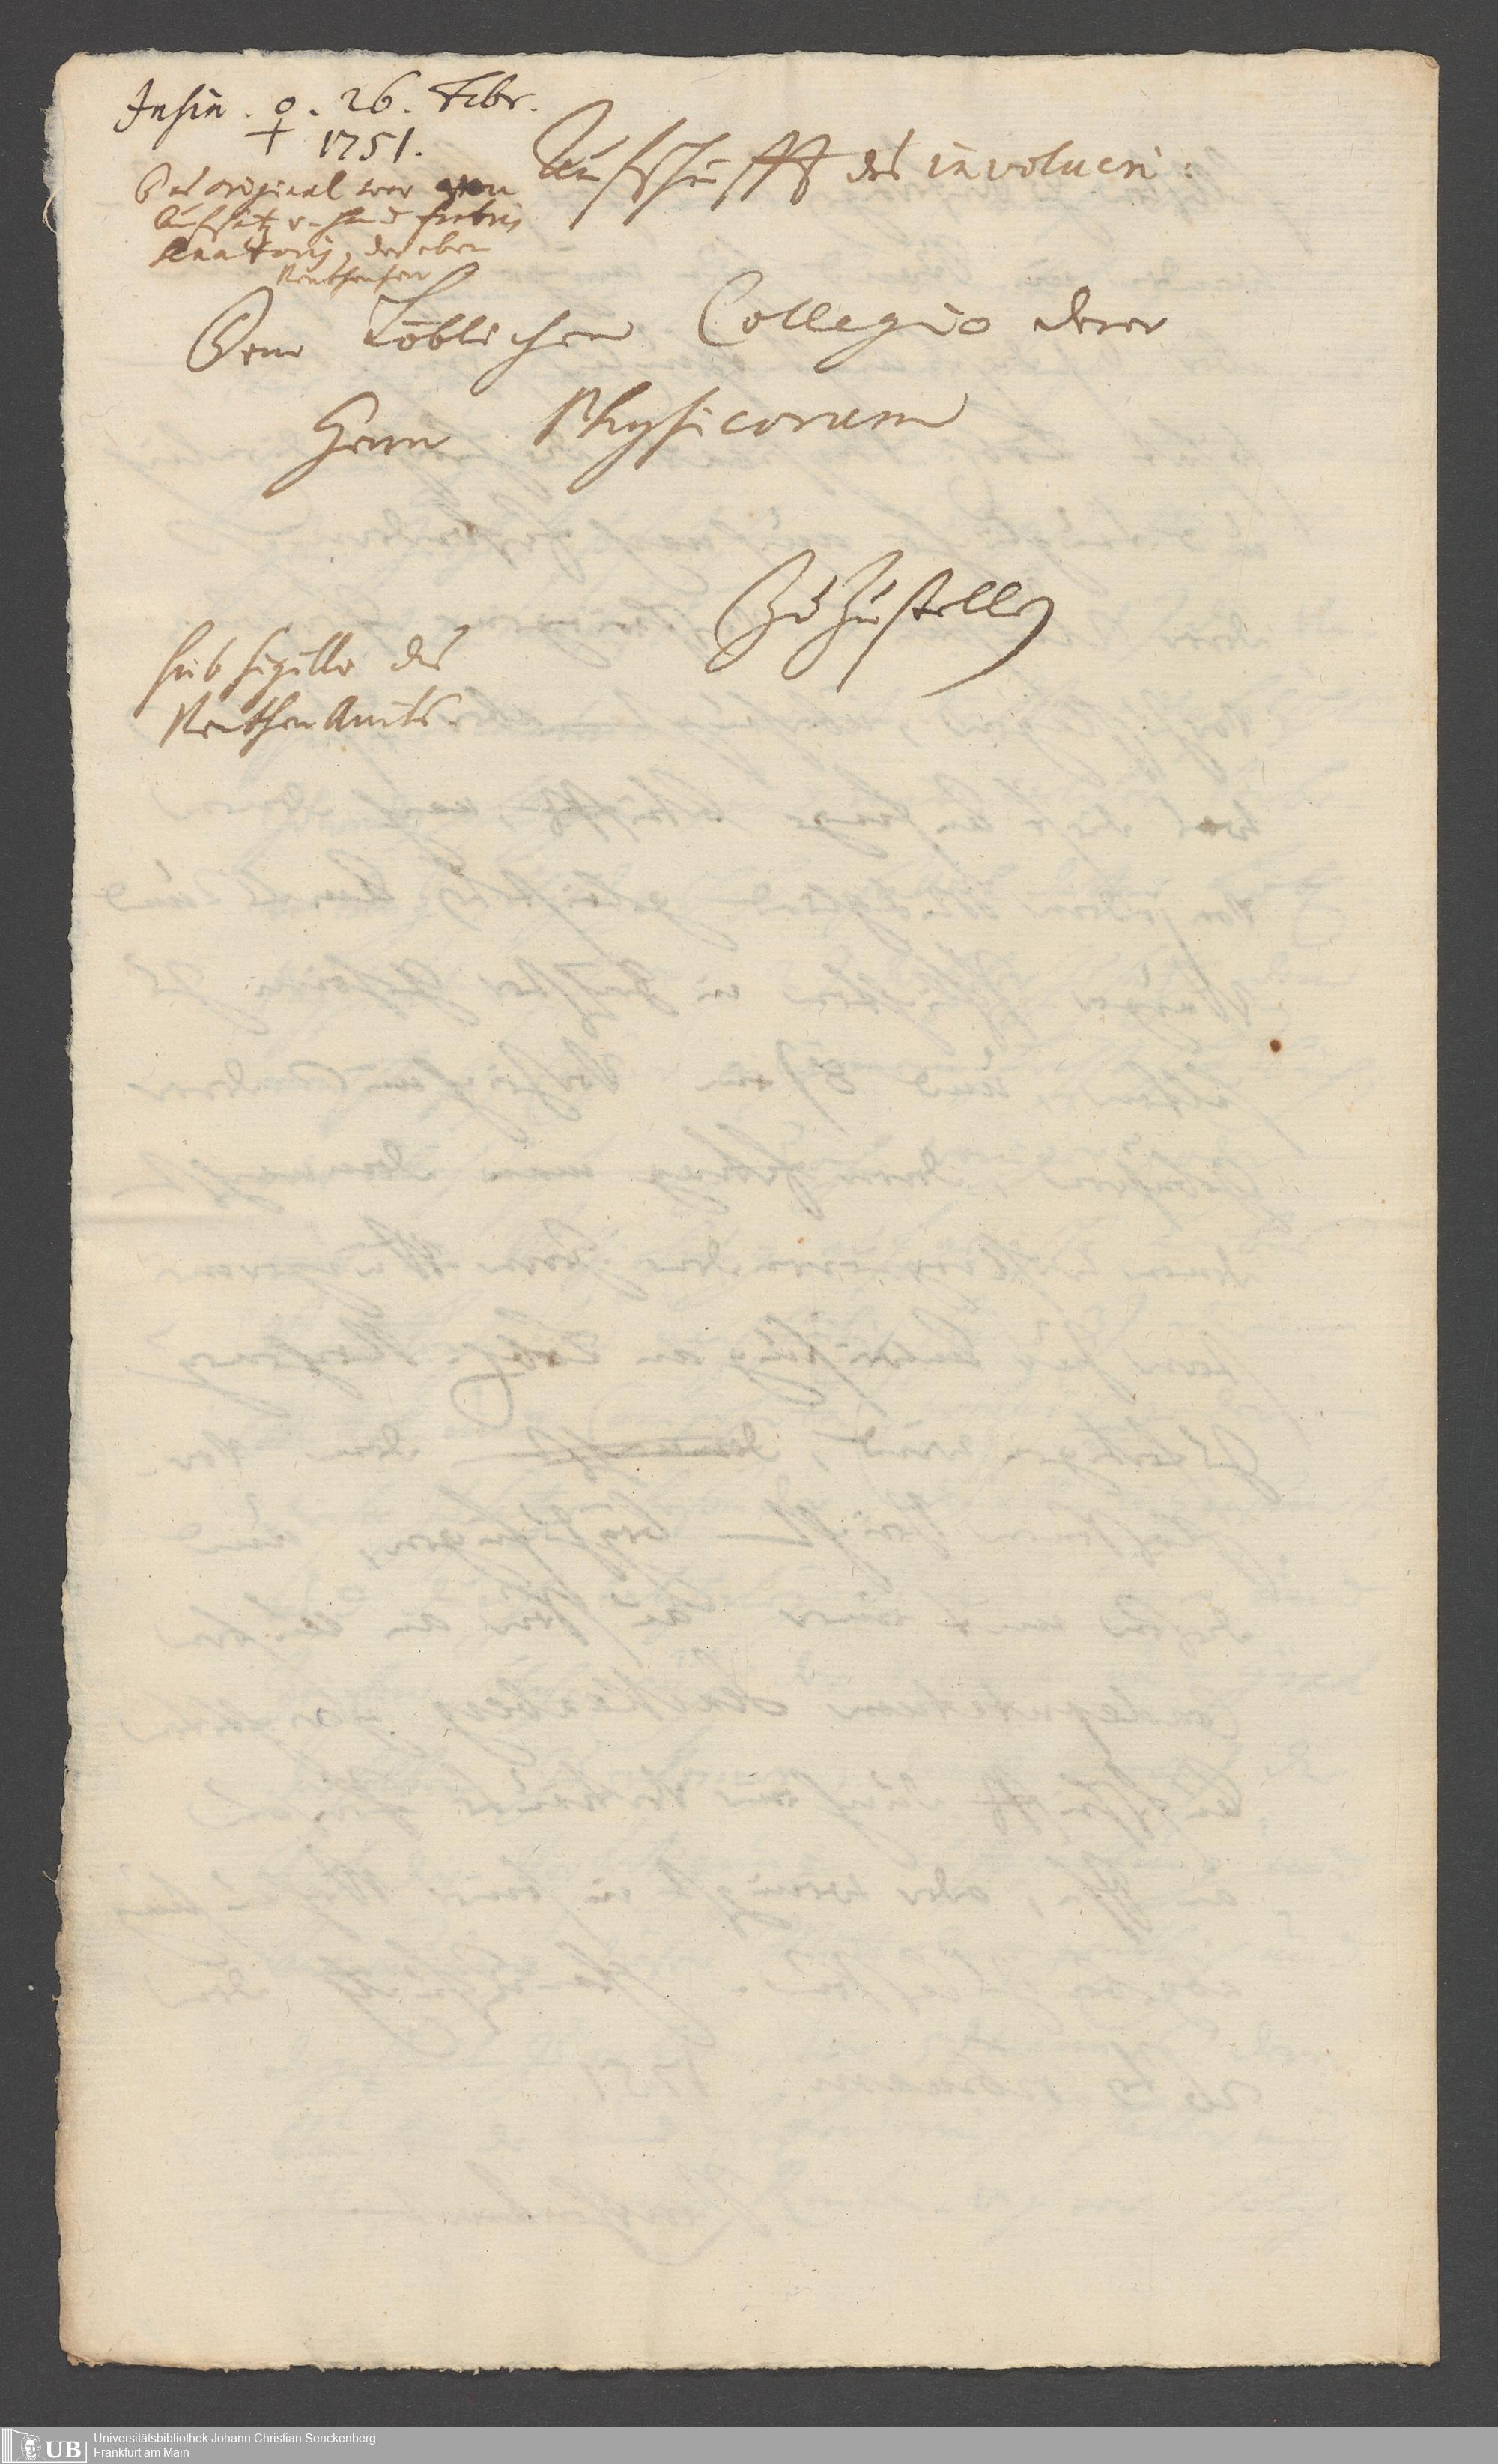 Insin. ♀. 26. Febr.
1751.
Das original war von
Aufsatz v. Hand
der eben
Aufschrifft des involucri:
Dem Löblichen Collegio derer
Herrn Physicorum
Zu zustellen
sub sigillo des
Renthen Amts.
Universitätsbibliothek Johann Christian Senckenberg
Frankfurt am Main
UB